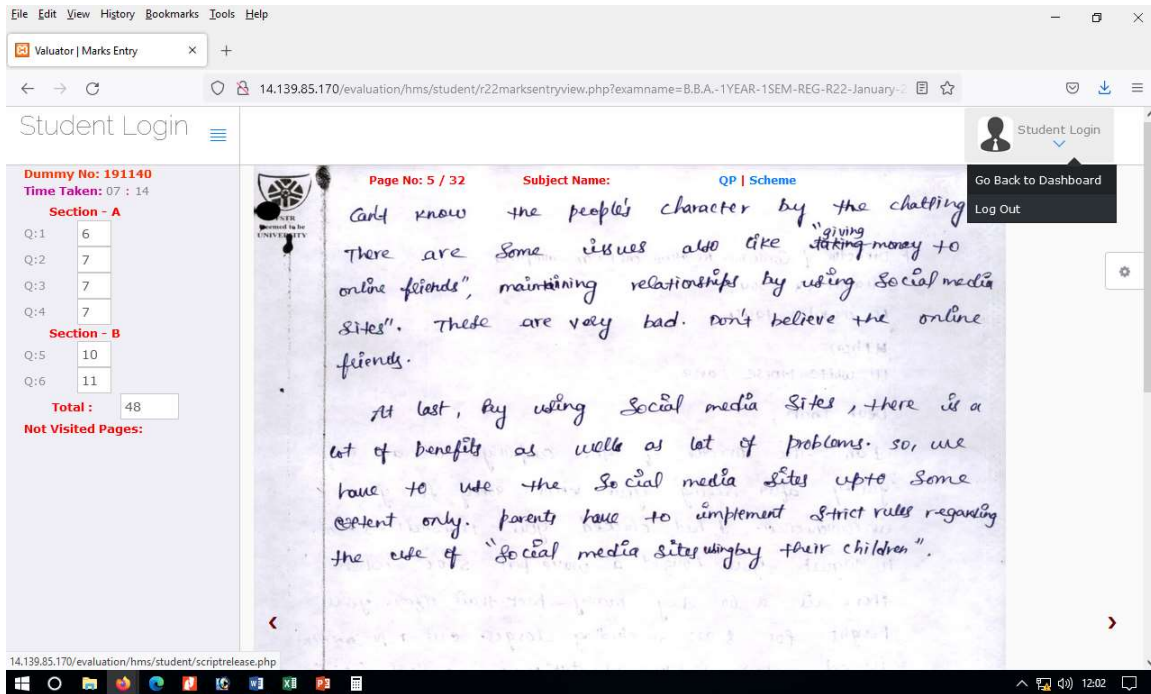 File Edit View History Bookmarks Tools Help
Valuator | Marks Entry
14.139.85.170/evaluation/hms/student/r22marksentryview.php?examname=B.B.A.-1YEAR-1SEM-REG-R22-January-2
Student Login
Student Login
Go Back to Dashboard
Log Out
Dummy No: 191140
Time Taken: 07 : 14
Section - A
Q:1 6
Q:2 7
Q:3 7
Q:4 7
Section - B
Q:5 10
Q:6 11
Total : 48
Not Visited Pages:
Page No: 5 / 32 Subject Name: QP | Scheme
Can't know the people's character by the chatting
There are some issues also like "giving taking money to
online friends", maintaining relationships by using Social media
Sites". These are very bad. Don't believe the online
friends.
At last, By using Social media Sites, there is a
lot of benefits as wells as lot of problems. so, we
have to use the Social media sites upto some
extent only. parents have to implement strict rules regarding
the use of "Social media sites using by their children".
14.139.85.170/evaluation/hms/student/scriptrelease.php
12:02